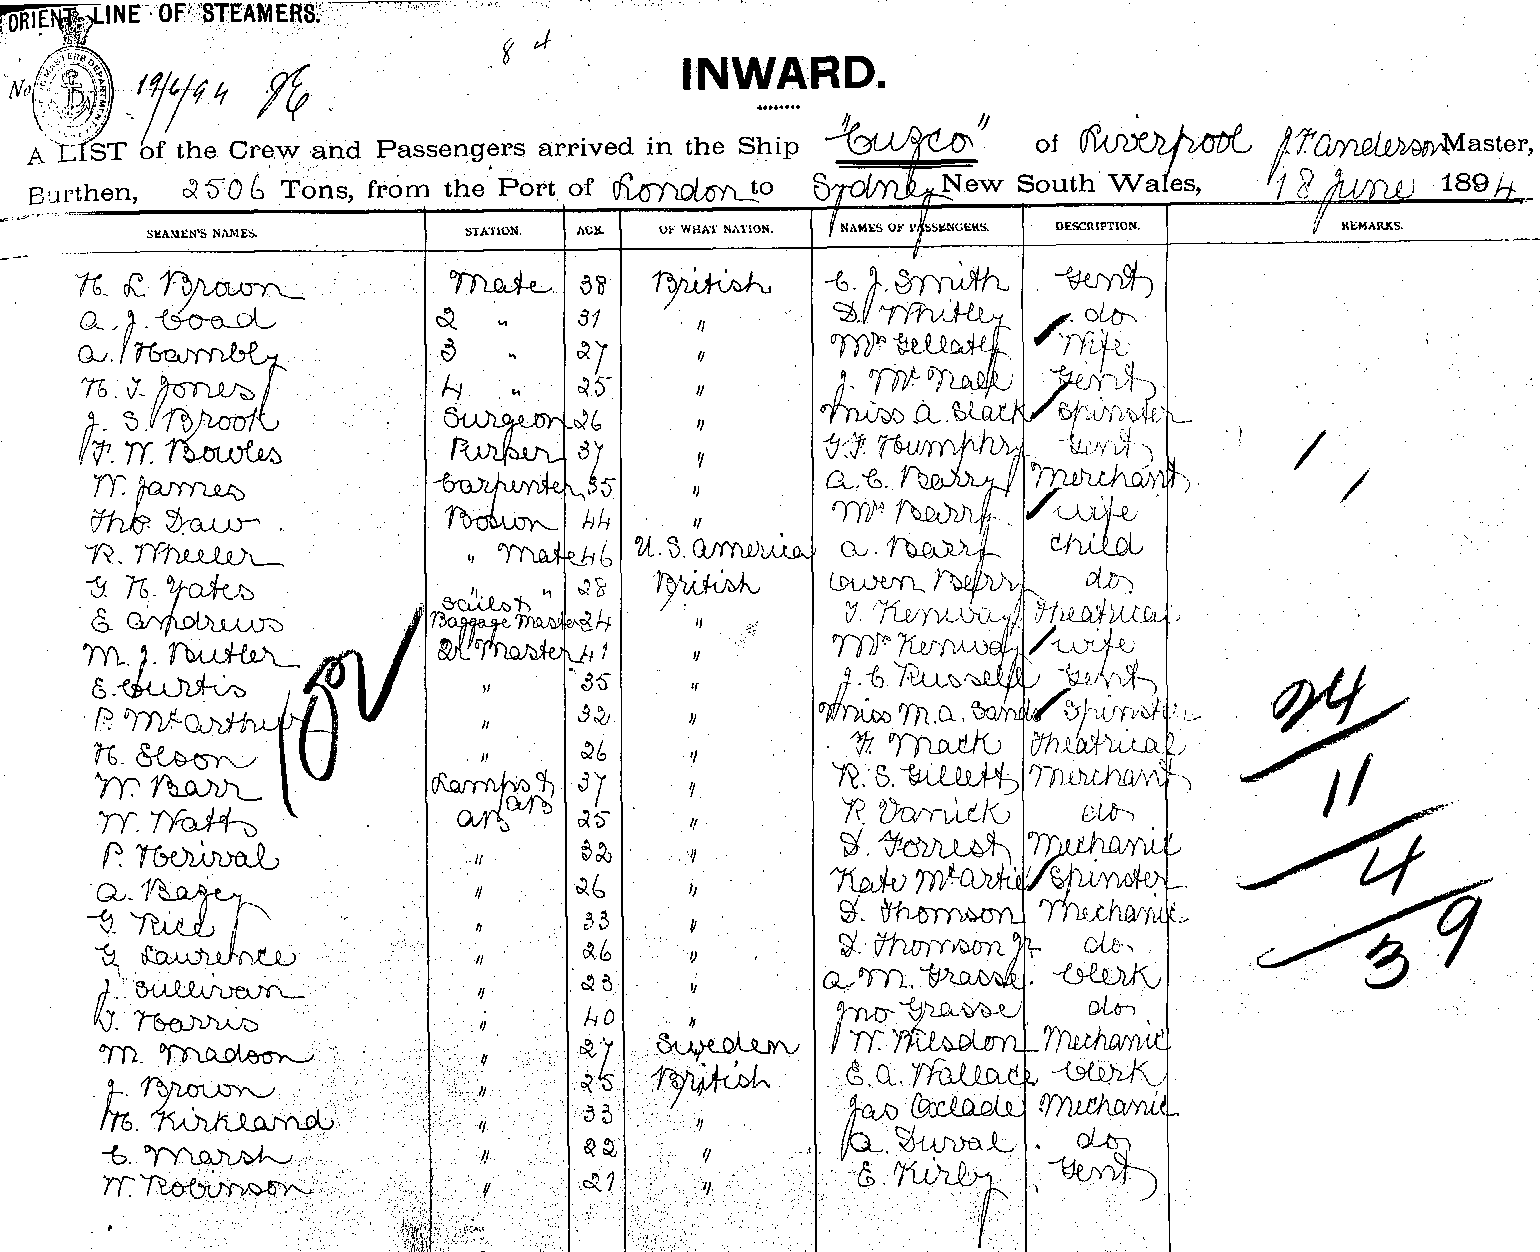 ORIENT LINE OF STEAMERS.
8 4
No 19/6/94
INWARD.
A LIST of the Crew and Passengers arrived in the Ship "Cuzco" of Liverpool J F Anderson Master,
Burthen, 2506 Tons, from the Port of London to Sydney New South Wales, 18 June 1894
SEAMEN'S NAMES. STATION. AGE. OF WHAT NATION. NAMES OF PASSENGERS. DESCRIPTION. REMARKS.
H. L. Braun Mate 38 British C. J. Smith Gent
A. J. Coad 2 " 31 " D. Whitley do
A. Hambly 3 " 27 " Mrs Gellatly Wife
H. T. Jones 4 " 25 " J. McNall Gent
J. S. Brook Surgeon 26 " Miss A. Slack Spinster
F. W. Bowles Purser 37 " G. F. Humphry Gent
W. James Carpenter 35 " A. C. Barry Merchant
Tho. Daw Bosun 44 " Mrs Barry wife
R. Wheeler " Mate 46 U. S. America A. Barry child
G. H. Yates " " 28 British Owen Barry do
E Andrews Baggage Master 24 " T. Kenway Theatrical
M. J. Butler Qr Master 41 " Mrs Kenway wife
E. Curtis " 35 " J. C. Russell Gent
P. McArthur " 32 " Miss M. A. Sands Spinster
H. Elson " 26 " F. Mack Theatrical
W. Barr Lamps & AB 37 " R. S. Gillett Merchant
W. Watts AB 25 " R Varrick do
P. Herival " 32 " D. Forrest Mechanic
A. Bazey " 26 " Kate McArtie Spinster
G. Rice " 33 " D. Thomson Mechanic
G Laurence " 26 " D. Thomson Jr. do
J. Sullivan " 23 " A M. Grasse Clerk
T. Harris " 40 " Jno Grasse do
M. Madson " 27 Sweden W. Wilsdon Mechanic
J. Brown " 25 British E. A. Wallace Clerk
H. Kirkland " 33 " Jas Oxlade Mechanic
C. Marsh " 22 " A. Duval do
W. Robinson " 21 " E. Kirby Gent
102
24
11
4
39